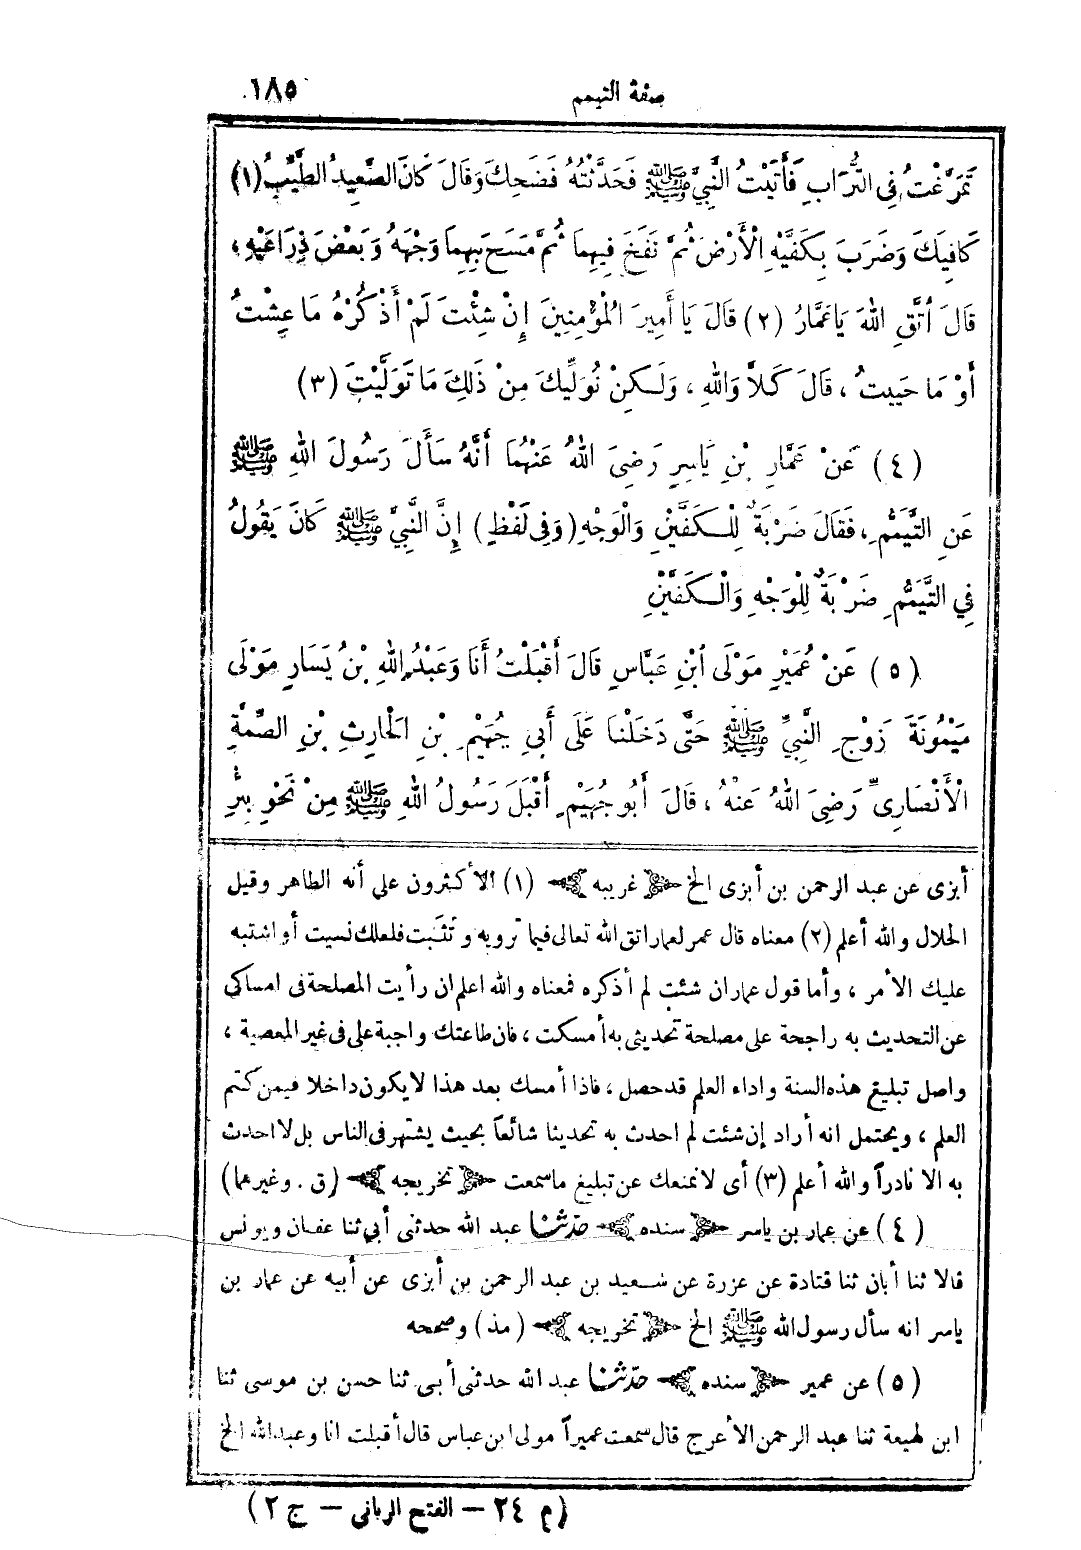 صفة التيمم ١٨٥
تَمَرَّغْتُ فِى التُّرَابِ فَأَتَيْتُ النَّبِىَّ ﷺ فَحَدَّثْتُهُ فَضَحِكَ وَقَالَ كَانَ الصَّعِيدُ الطَّيِّبُ (١)
كَافِيَكَ وَضَرَبَ بِكَفَّيْهِ الْأَرْضَ ثُمَّ نَفَخَ فِيهِمَا ثُمَّ مَسَحَ بِهِمَا وَجْهَهُ وَبَعْضَ ذِرَاعَيْهِ ،
قَالَ اُتَّقِ اللهَ يَاعَمَّارُ (٢) قَالَ يَا أَمِيرَ الْمُؤْمِنِينَ إِنْ شِئْتَ لَمْ أَذْكُرْهُ مَا عِشْتُ
أَوْ مَا حَيِيتُ ، قَالَ كَلاَّ وَاللهِ ، وَلَكِنْ نُوَلِّيكَ مِنْ ذَلِكَ مَا تَوَلَّيْتَ (٣)
(٤) عَنْ عَمَّارِ بْنِ يَاسِرٍ رَضِىَ اللهُ عَنْهُمَا أَنَّهُ سَأَلَ رَسُولَ اللهِ ﷺ
عَنِ التَّيَمُّمِ ، فَقَالَ ضَرْبَةٌ لِلْكَفَّيْنِ وَالْوَجْهِ (وَفِى لَفْظٍ) إِنَّ النَّبِىَّ ﷺ كَانَ يَقُولُ
فِي التَّيَمُّمِ ضَرْبَةٌ لِلْوَجْهِ وَالْكَفَّيْنِ
(٥) عَنْ عُمَيْرٍ مَوْلَى اُبْنِ عَبَّاسٍ قَالَ أَقْبَلْتُ أَنَا وَعَبْدُ اللهِ بْنُ يَسَارٍ مَوْلَى
مَيْمُونَةَ زَوْجِ النَّبِيِّ ﷺ حَتَّى دَخَلْنَا عَلَى أَبِي جُهَيْمِ بْنِ الْحَارِثِ بْنِ الصِّمَّةِ
الْأَنْصَارِىِّ رَضِىَ اللهُ عَنْهُ ، قَالَ أَبُو جُهَيْمٍ أَقْبَلَ رَسُولُ اللهِ ﷺ مِنْ نَحْوِ بِئْرِ
أبزى عن عبد الرحمن بن أبزى الخ ﴿غريبه﴾ (١) الأكثرون على أنه الطاهر وقيل
الحلال والله أعلم (٢) معناه قال عمر لعمار اتق الله تعالى فيما ترويه وتثبت فلعلك نسيت أو اشتبه
عليك الأمر ، وأما قول عمار ان شئت لم أذكره فمعناه والله اعلم ان رأيت المصلحة فى امساكى
عن التحديث به راجحة على مصلحة تحديثى به أمسكت ، فان طاعتك واجبة على فى غير المعصية ،
واصل تبليغ هذه السنة واداء العلم قد حصل ، فاذا أمسك بعد هذا لا يكون داخلا فيمن كتم
العلم ، ويحتمل انه أراد إن شئت لم احدث به تحديثا شائعاً بحيث يشتهر فى الناس بل لا احدث
به الا نادراً والله أعلم (٣) أى لا نمنعك عن تبليغ ما سمعت ﴿تخريجه﴾ (ق . وغيرهما)
(٤) عن عمار بن ياسر ﴿سنده﴾ حدثنا عبد الله حدثنى أبي ثنا عفان ويونس
قالا ثنا أبان ثنا قتادة عن عزرة عن سعيد بن عبد الرحمن بن أبزى عن أبيه عن عمار بن
ياسر انه سأل رسول الله ﷺ الخ ﴿تخريجه﴾ (مذ) وصححه
(٥) عن عمير ﴿سنده﴾ حدثنا عبد الله حدثنى أبى ثنا حسن بن موسى ثنا
ابن لهيعة ثنا عبد الرحمن الأعرج قال سمعت عميراً مولى ابن عباس قال أقبلت انا وعبد الله الخ
(م ٢٤ – الفتح الربانى – ج ٢)